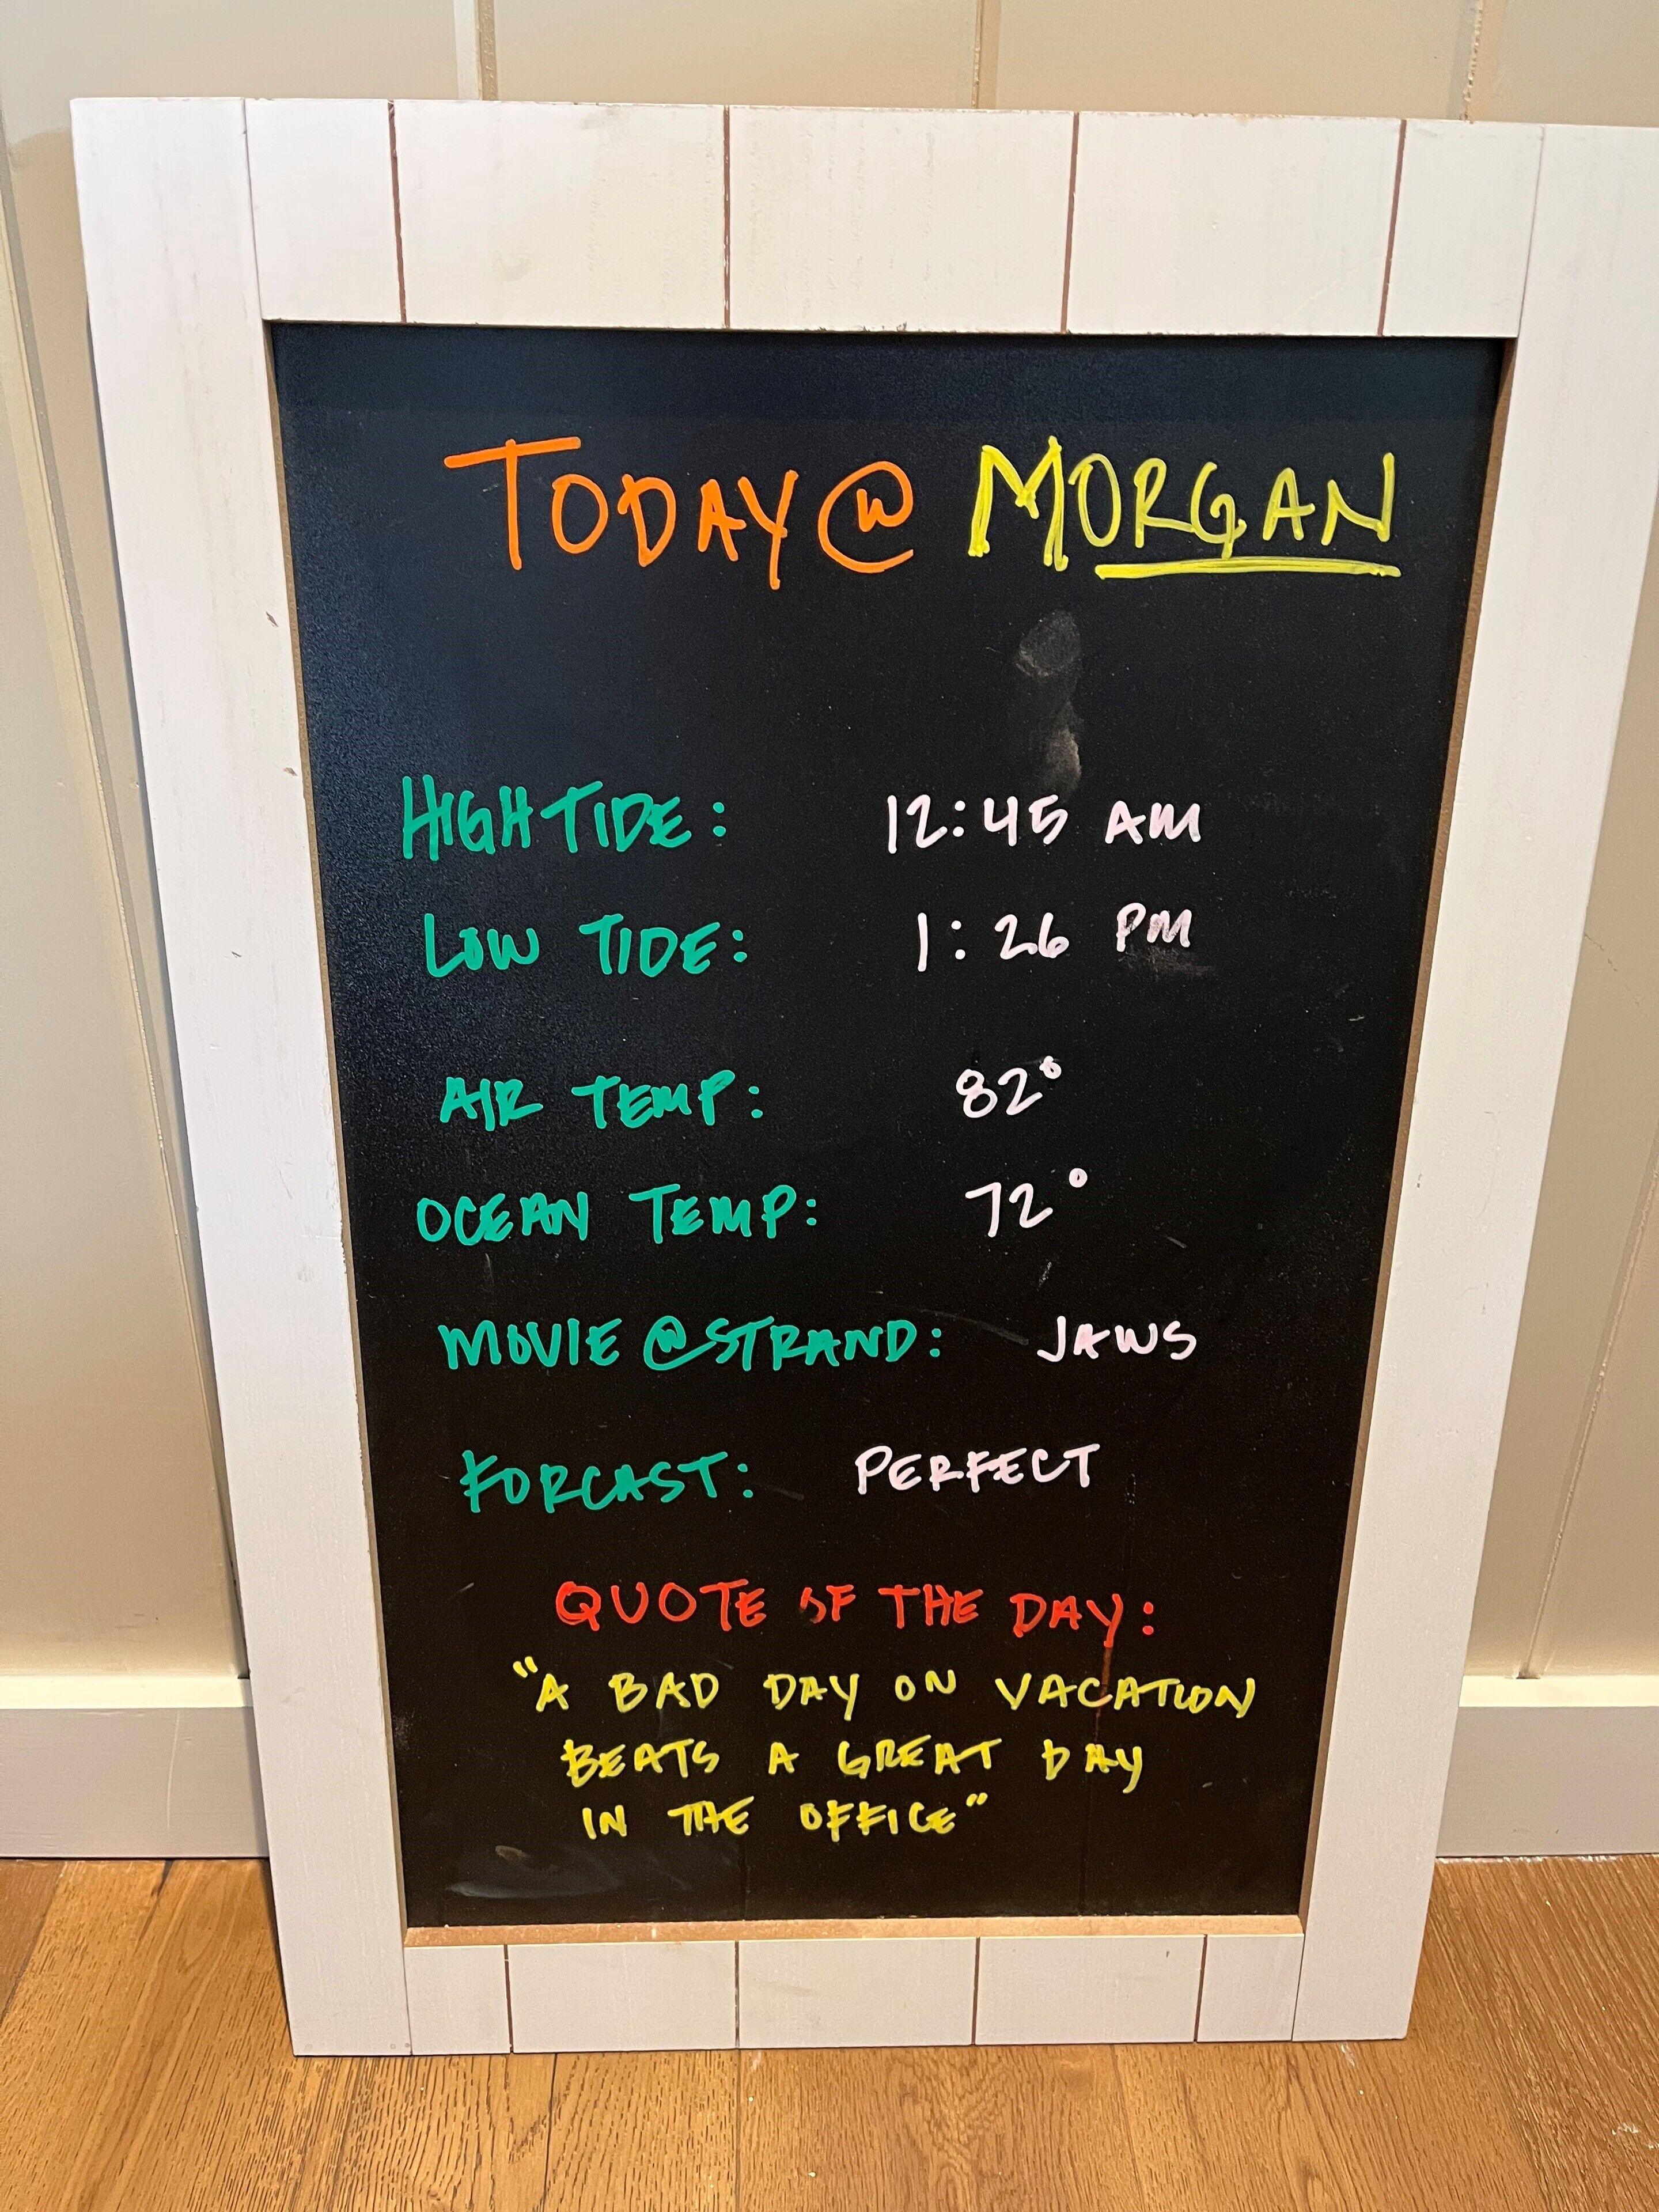 TODAY @ MORGAN
HIGH TIDE: 12:45 AM
LOW TIDE: 1:26 PM
AIR TEMP: 82°
OCEAN TEMP: 72°
MOVIE @ STRAND: JAWS
FORCAST: PERFECT
QUOTE OF THE DAY:
"A BAD DAY ON VACATION
BEATS A GREAT DAY
IN THE OFFICE"